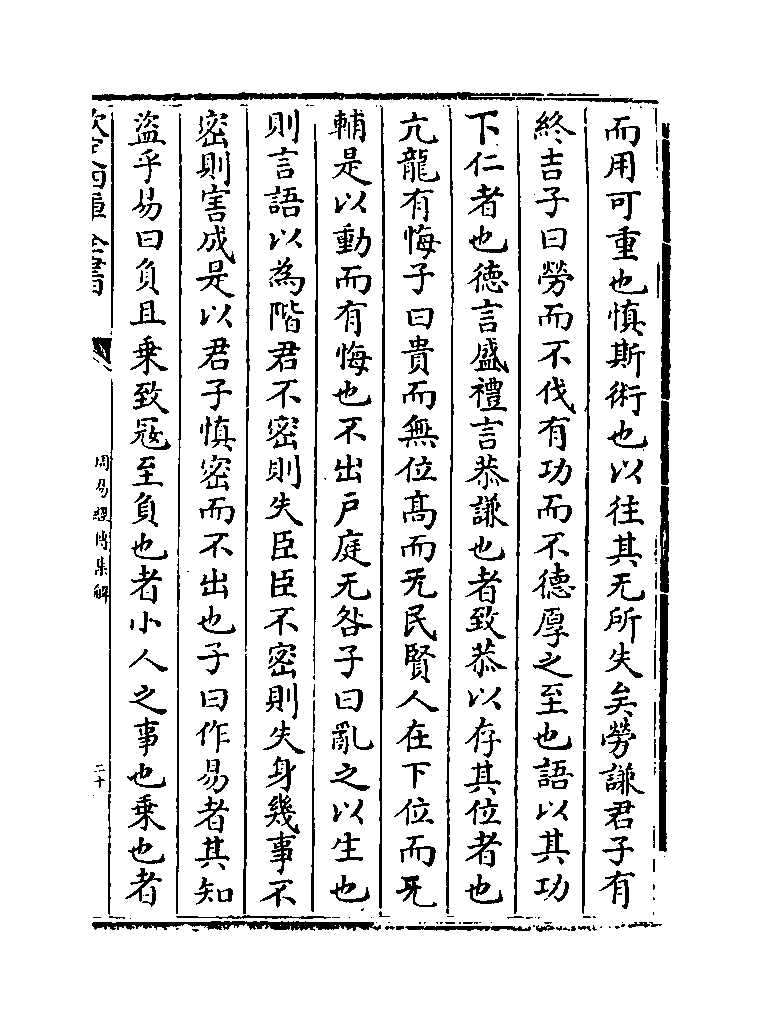 而用可重也慎斯術也以往其无所失矣勞謙君子有
終吉子曰勞而不伐有功而不徳厚之至也語以其功
下仁者也徳言盛禮言恭謙也者致恭以存其位者也
亢龍有悔子曰貴而無位髙而无民賢人在下位而无
輔是以動而有悔也不出户庭无咎子曰亂之以生也
則言語以為階君不密則失臣臣不密則失身幾事不
密則害成是以君子慎密而不出也子曰作易者其知
盗乎易曰負且乗致冦至負也者小人之事也乗也者
欽定四庫全書
周易經傳集解
二十